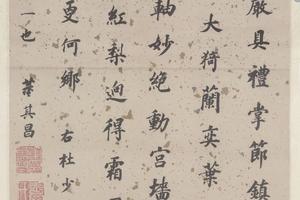 嚴具禮掌節鎮
大猗蘭奕葉
軸妙絕動宮墻
紅梨迥得霜
更何鄉 右杜少
一也 董其昌